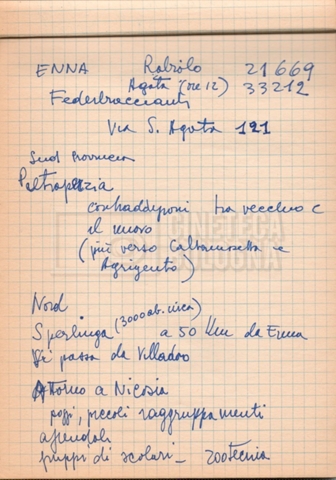 ENNA Rabiolo 21669
Agata (ore 12) 33212
Federbraccianti
Via S. Agata 121
Sud Provincia
Pietraperzia
contraddizioni tra vecchio e
il nuovo
(più verso Caltanissetta e
Agrigento)
CINETECA
BOLOGNA
Nord
Sperlinga (3000 ab. circa) a 50 Km da Enna
Si passa da Villadoro
Attorno a Nicosia
piccoli raggruppamenti
aziendali
gruppi di scolari - zootecnia